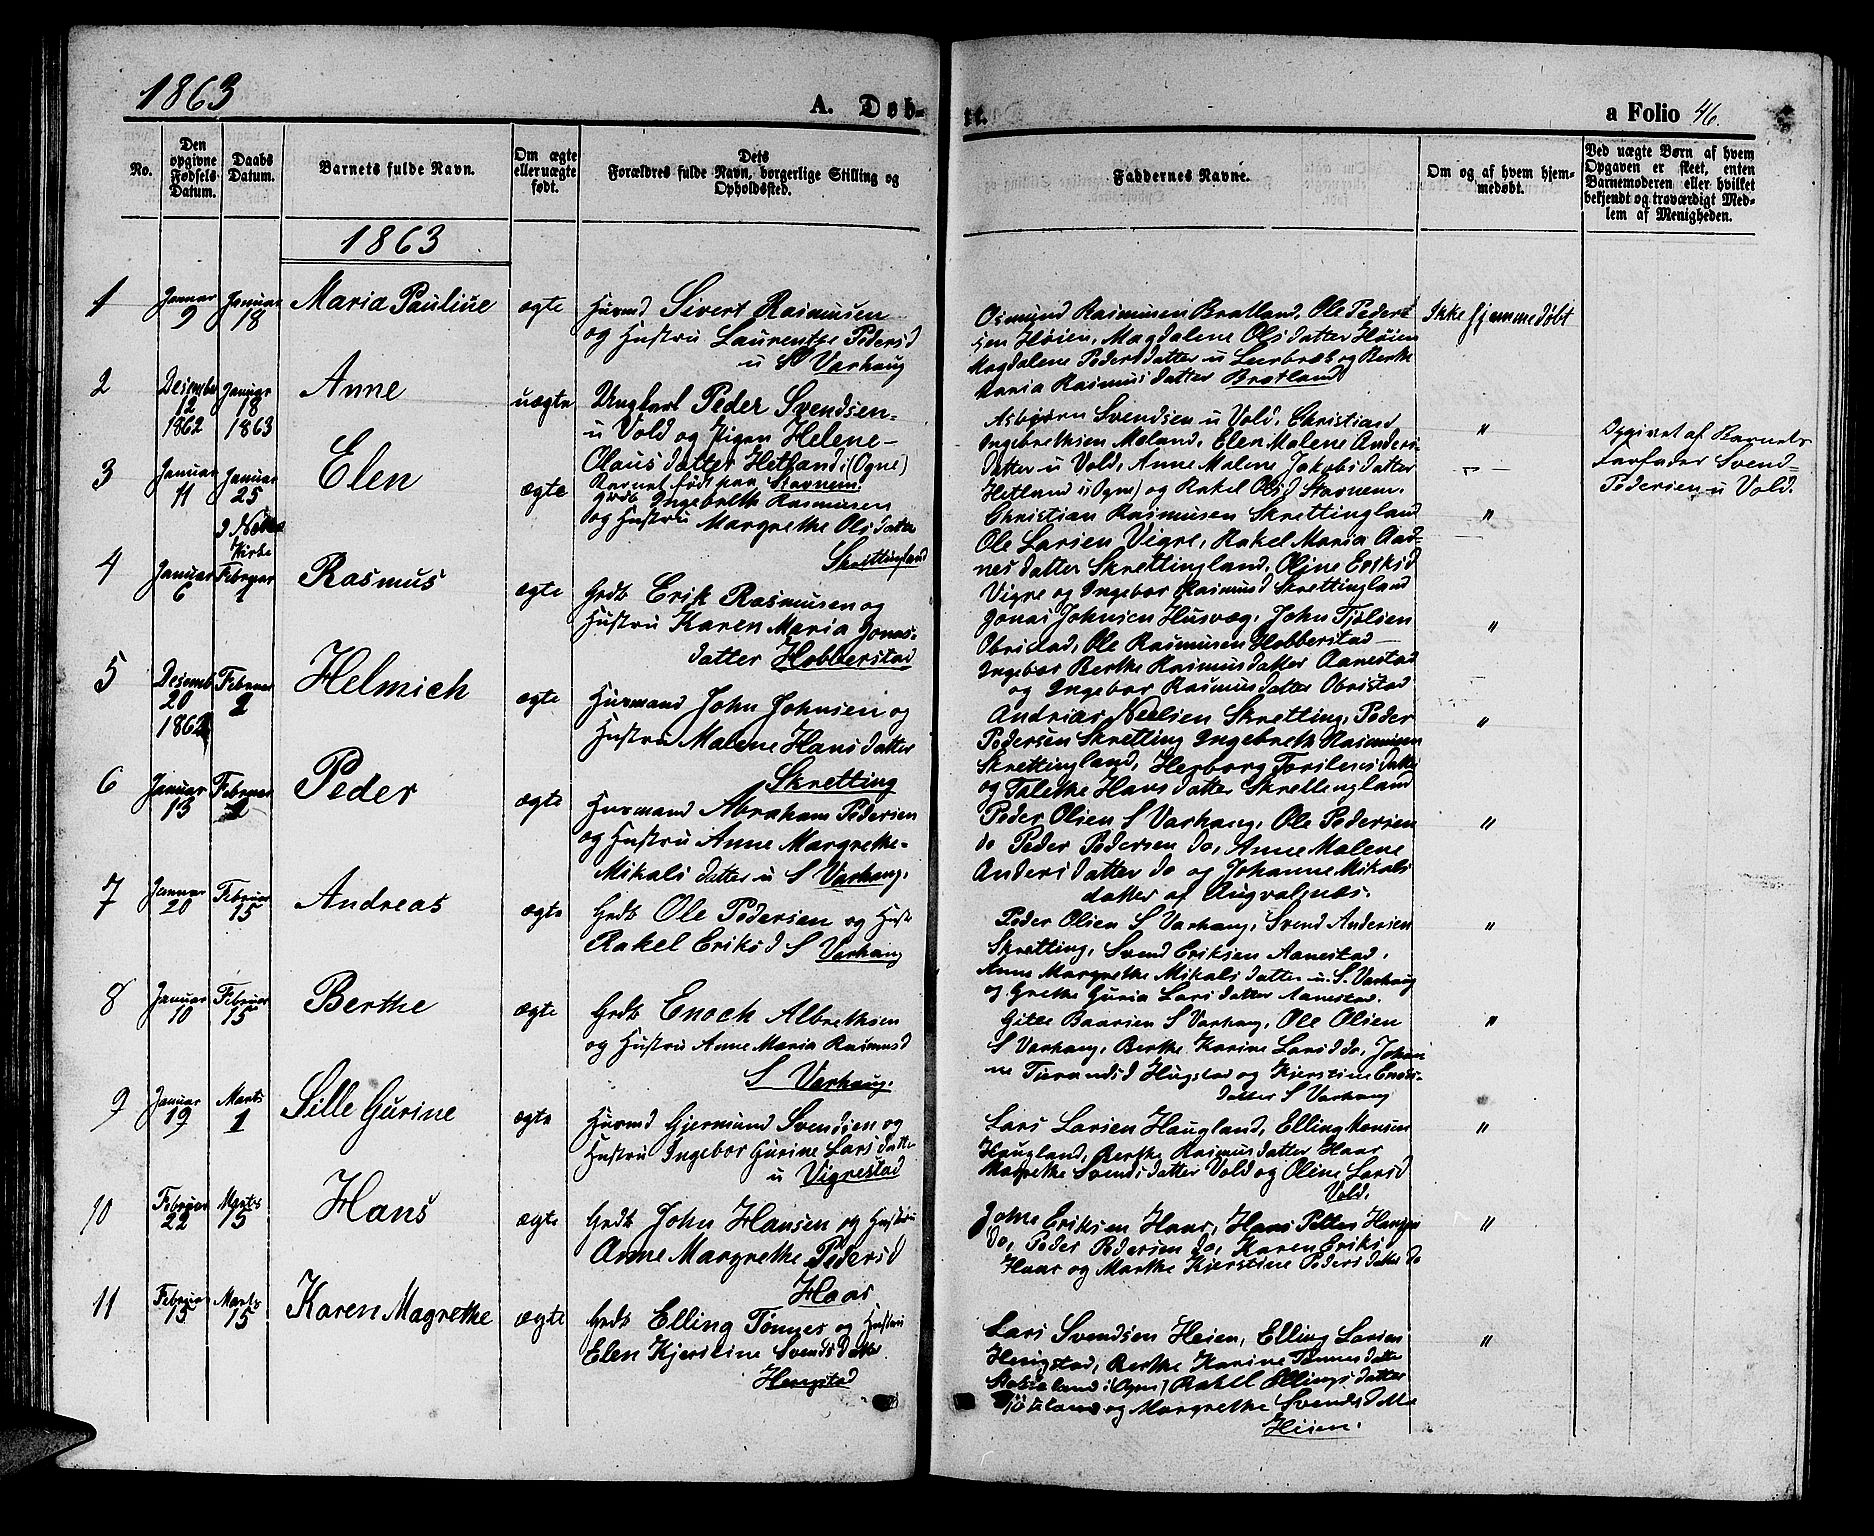 1863
A. Døb-
te.
a Folio 46.
No.
Den opgivne Fødsels Datum.
Daabs Datum.
Barnets fulde Navn.
Om ægte eller uægte født.
Dets Forældres fulde Navn, borgerlige Stilling og Opholdssted.
Faddernes Navne.
Om og af hvem hjemmedøbt.
Ved uægte Børn af hvem
Opgaven er skeet, enten
Barnemoderen eller hvilket
bekjendt og troværdigt Med-
lem af Menigheden.
1863
1 Januar 9 Januar 18 Maria Pauline ægte
Huusmd Sivert Rasmusen
og Hustru Laurentse Pedersd
u S Varhaug
Osmund Rasmusen Bratland, Ole Peder-
sen Høien, Magdalene Olsdatter Høien
Magdalene Pedersdatter u Leerbræk og Berthe
Maria Rasmusdatter Bratland
Ikke hjemmedøbt
2 Desember 12 1862 Januar 18 1863 Anne uægte
Ungkarl Peder Svendsen
u Vold og Pigen Helene
Olausdatter Hetland i (Ogne)
Barnet født paa Stavnem
Asbjørn Svendsen u Vold, Christian
Ingebrethsen Meland, Elen Malene Anders-
datter u Vold, Anne Malene Jakobsdatter
Hetland i (Ogne) og Rakel Olsd Stavnem.
"
Opgivet af Barnets
Farfader Svend
Pedersen u Vold.
3 Januar 11 Januar 25 I Nærbø Kirke Elen ægte
Grdb Ingebreth Rasmusen
og Hustru Margrethe Olsdatter
Skrettingland
Christian Rasmusen Skrettingland
Ole Larsen Vigre, Rakel Maria Aad-
nesdatter Skrettingland, Oline Eriksd
Vigre og Ingebor Rasmusd Skrettingland
"
4 Januar 6 Februar 1 Rasmus ægte
Grdb Erik Rasmusen og
Hustru Karen Maria Jonas-
datter Hobberstad
Jonas Johnsen Husvæg, John Tjølsen
Obristad, Ole Rasmusen Hobberstad
Ingebor Berthe Rasmusdatter Aanestad
og Ingebor Rasmusdatter Obristad
"
5 Desemb 20 1862 Februar 2 Helmich ægte
Huusmand John Johnsen og
Hustru Malene Hansdatter
Skretting
Andrias Neelsen Skretting, Peder
Pedersen Skretting Ingebreth Rasmusen
Skrettingland, Herborg Torstensdatter
og Talethe Hansdatter Skrettingland
"
6 Januar 13 Februar 1 Peder ægte
Huusmand Abraham Pedersen
og Hustru Anne Margrethe
Mikalsdatter u S Varhaug.
Peder Olsen S Varhaug, Ole Pedersen
do Peder Pedersen do, Anne Malene
Andersdatter do og Johanne Mikals
datter af Augvalnæs.
"
7 Januar 20 Februar 15 Andreas ægte
Grdb Ole Pedersen og Hustr
Rakel Eriksd S Varhaug
Peder Olsen S Varhaug, Svend Andersen
Skretting, Svend Eriksen Aanestad,
Anne Margrethe Mikalsdatter u. S. Varhaug
og Grethe Guria Larsdatter Aanestad.
"
8 Januar 10 Februar 15 Berthe ægte
Grdb Enoch Albrethsen
og Hustru Anne Maria Rasmusd
S Varhaug.
Gitle Baarsen S Varhaug, Ole Olsen
S Varhaug, Berthe Karine Larsd do, Johan
ne Tørresd Hugstad og Kjerstine Enoks-
datter S Varhaug
"
9 Januar 19 Marts 1 Sille Gurine ægte
Huusmd Gjermund Svendsen og
Hustru Ingebor Gurine Larsdatter
u Vigrestad
Lars Larsen Haugland, Elling Monsen
Haugland, Berthe Rasmusdatter Haar
Margrethe Svendsdatter Vold og Oline Larsd
Vold.
"
10 Februar 22 Marts 15 Hans ægte
Grdb John Hansen og Hustru
Anne Margrethe Pedersd
Haar
John Eriksen Haar, Hans Petter Hansen
do, Peder Pedersen do, Karen Eriks
Haar og Marthe Kjerstine Pedersdatter do
"
11 Februar 15 Marts 15 Karen Magrethe ægte
Grdb Elling Tønnes og Hustru
Elen Kjerstine Svendsdatter
Hengstad
Lars Svendsen Heien, Elling Larsen
Hengstad, Berthe Karine Tønnesdatter
Stokkeland i (Ogne) Rakel Ellingsdatter
Tjøtland og Margrethe Svendsdatter
Heien.
"